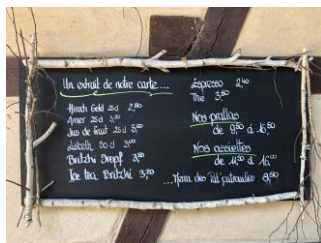 Un extrait de notre carte...
Hirsch Gold 25 d 2,80
Amer 25 d 3,20
Jus de fruit 25 d
Lisbeth 50 d 3,00
Bretzhi Dropf 3,50
Ice tea Bretzhi 3,20
Espresso 2,40
Thé 3,50
Nos prallas
de 9,50 à 16,50
Nos assiettes
de 11,50 à 16,00
...Menu des Pat'patrouilles 9,50